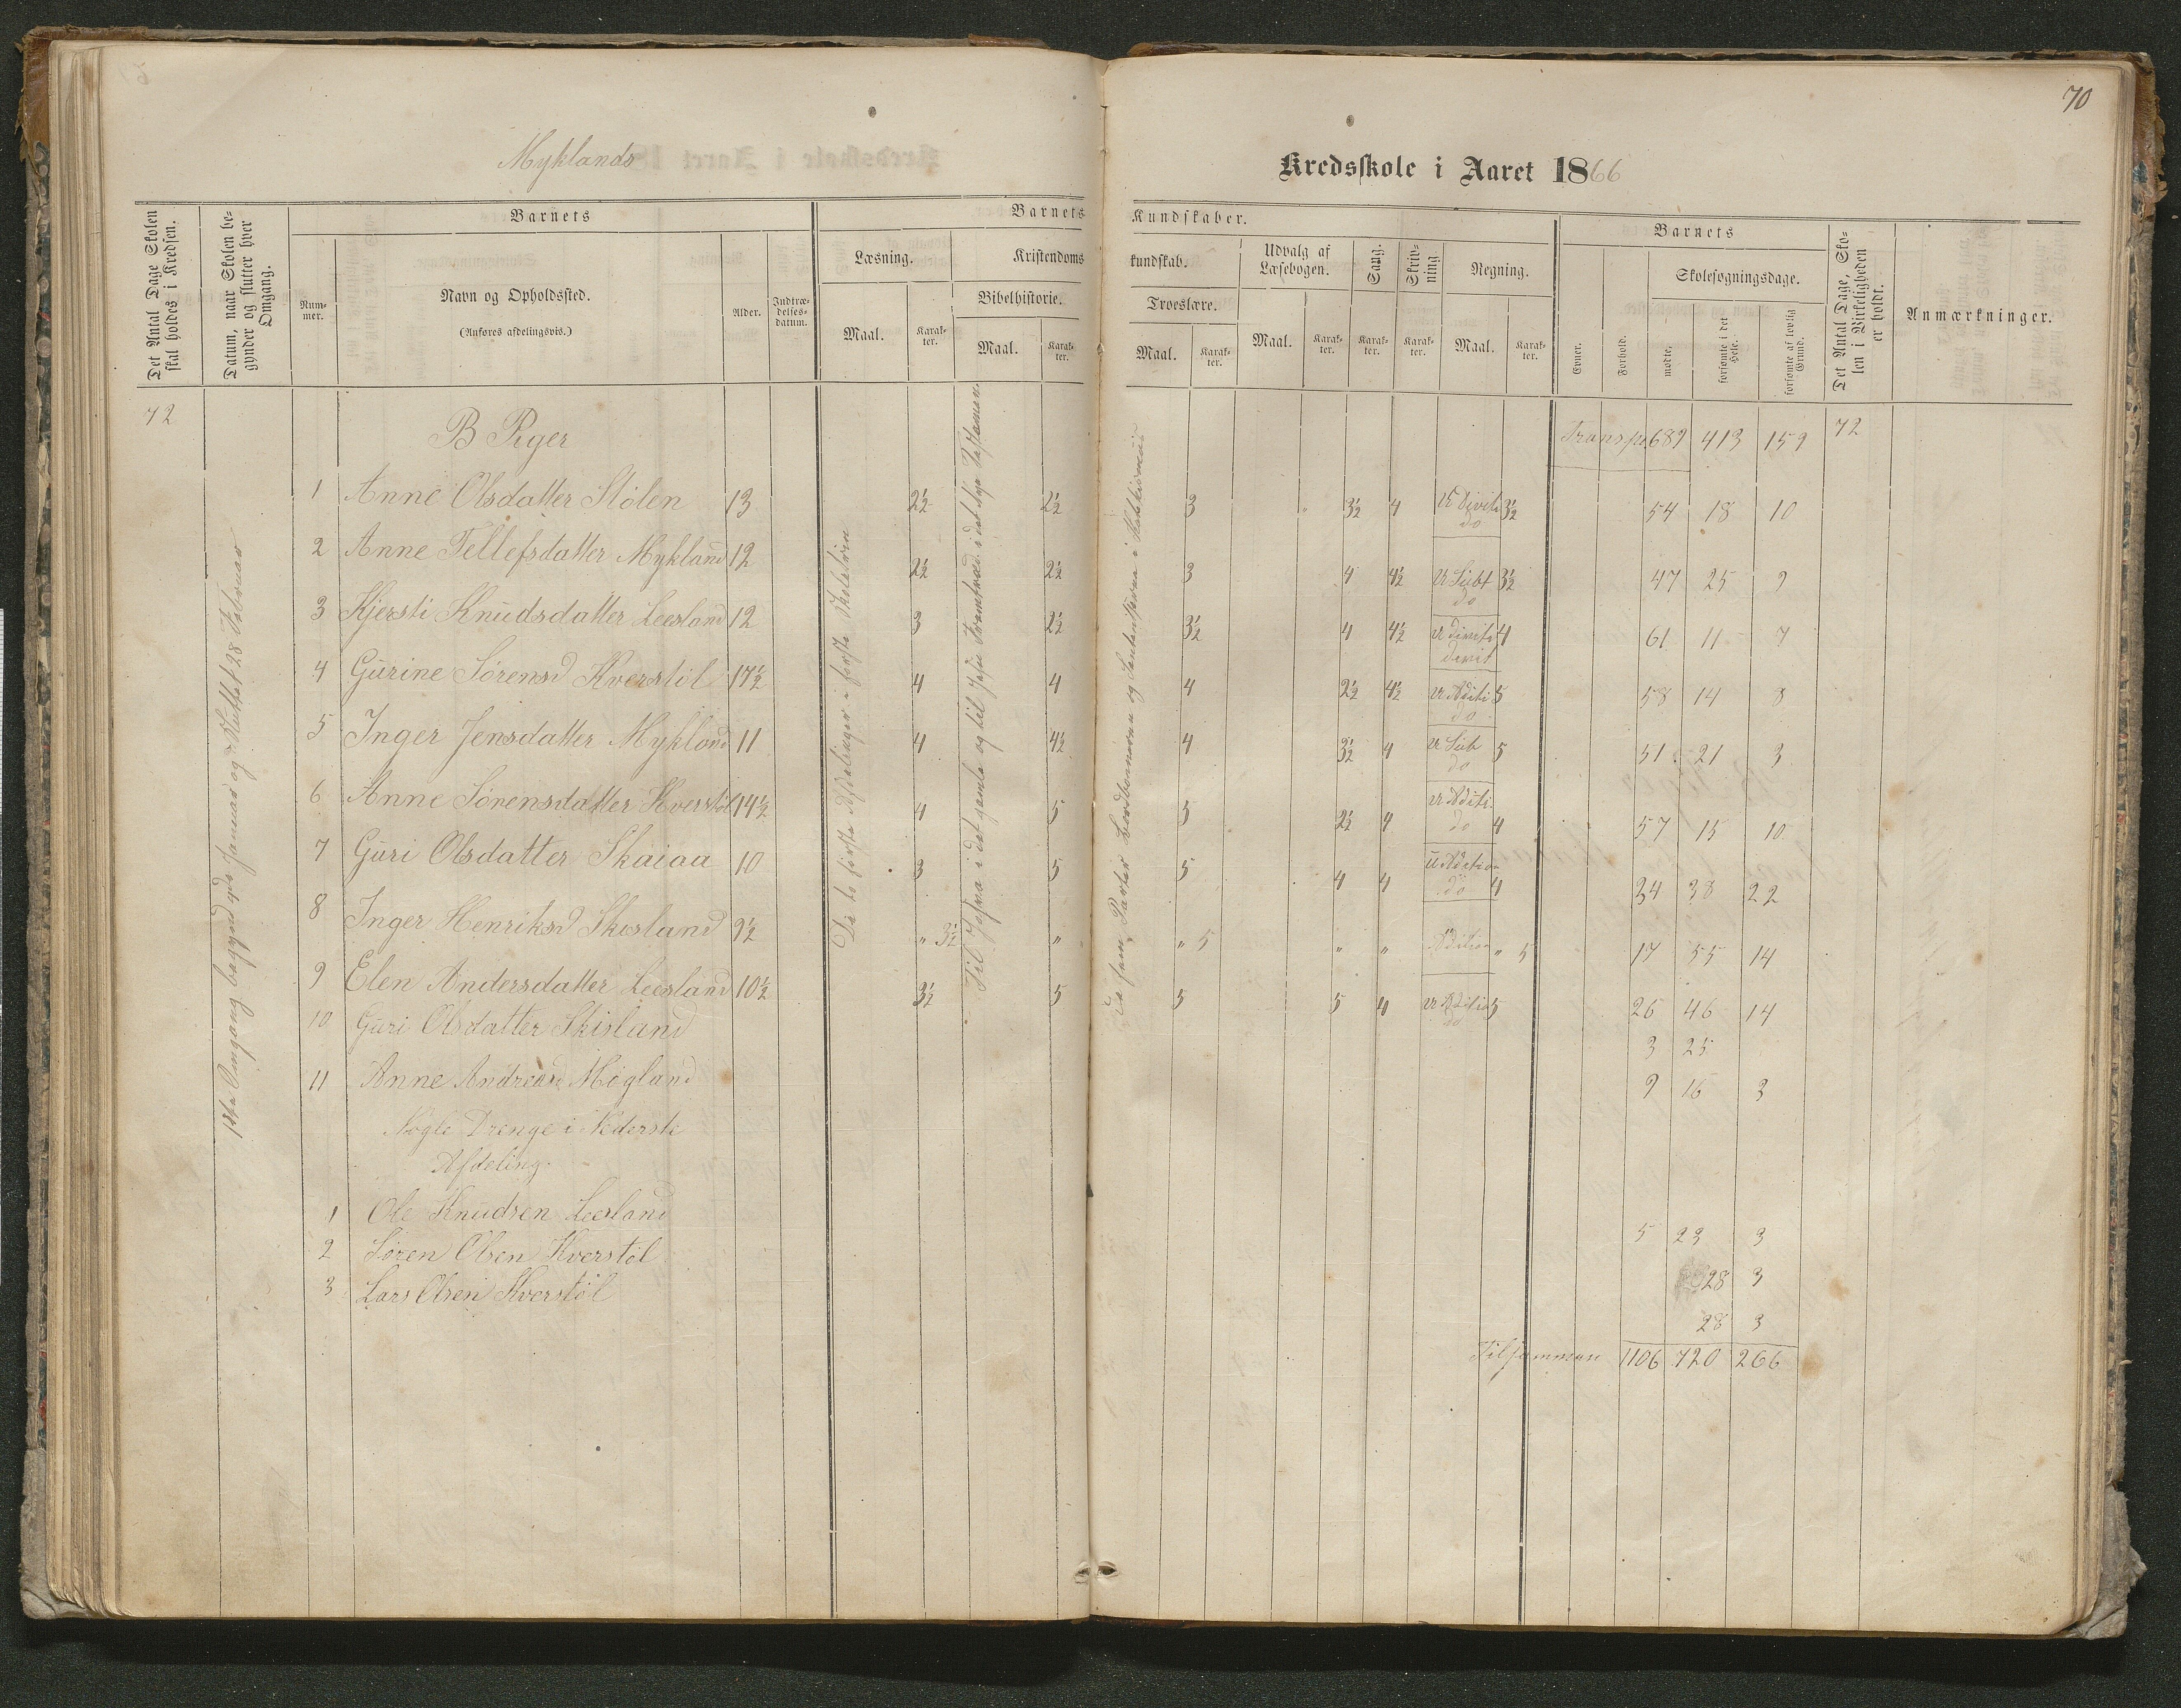 70
Myklands
Kredsskole i Aaret 1866
Det Antal Dage Skolen skal holdes i Kredsen.
Datum, naar Skolen begynder og slutter hver Omgang.
Barnets
Nummer.
Navn og Opholdssted.
(Anføres afdelingsvis.)
Alder.
Indtrædelsesdatum.
Barnets Kundskaber.
Læsning.
Maal.
Karakter.
Kristendomskundskab.
Bibelhistorie.
Maal.
Karakter.
Troeslære.
Maal.
Karakter.
Udvalg af Læsebogen.
Maal.
Karakter.
Sang.
Karakter.
Skrivning.
Karakter.
Regning.
Maal.
Karakter.
Barnets
Evner.
Forhold.
Skolesøgningsdage.
mødte.
forsømte i det Hele.
forsømte af lovlig Grund.
Det Antal Dage, Skolen i Virkeligheden er holdt.
Anmærkninger.
72 B Piger Transp 689 413 159 72
1 Anne Olsdatter Stølen 13 2½ 2½ 3 " 3½ 4 do 3½ 54 18 10
2 Anne Tellefsdatter Mykland 12 2½ 2½ 3 4 4½ U Subt do 3½ 47 25 9
3 Kjersti Knudsdatter Leesland 12 3 2½ 3½ 4 4½ 4 61 11 7
4 Gurine Sørensd Kverstøl 17½ 4 4 4 2½ 4½ U Aditi do 5 58 14 8
5 Inger Jensdatter Mykland 11 4 4½ 4 3½ 4 U Sub do 5 51 21 3
6 Anne Sørensdatter Kverstøl 14½ 4 5 5 2½ 4 U Aditi do 4 57 15 10
7 Guri Olsdatter Skaiaa 10 3 5 5 4 4 U Adition do 4 34 38 22
8 Inger Henriksd Skisland 9½ " 3½ " " 5 " " Adition " 5 17 55 14
9 Elen Andersdatter Leesland 10½ 3½ 5 5 5 4 U Adition do 5 26 46 14
10 Guri Olsdatter Skisland 3 25
11 Anne Andreasd Møgland 9 16 3
Nogle Drenge i Nederste
Afdeling.
1 Ole Knudsen Leesland 5 23 3
2 Søren Olsen Kverstøl 28 3
3 Lars Olsen Kverstøl 28 3
Tilsammen 1106 720 266
1ste Omgang begynd 4de Januar og sluttet 28 Februar
De to første Afdelinger i første Skoletrin
Til Josva i det gamle og til Jesu Fremtræd i det nye Testamen
De fem Parter